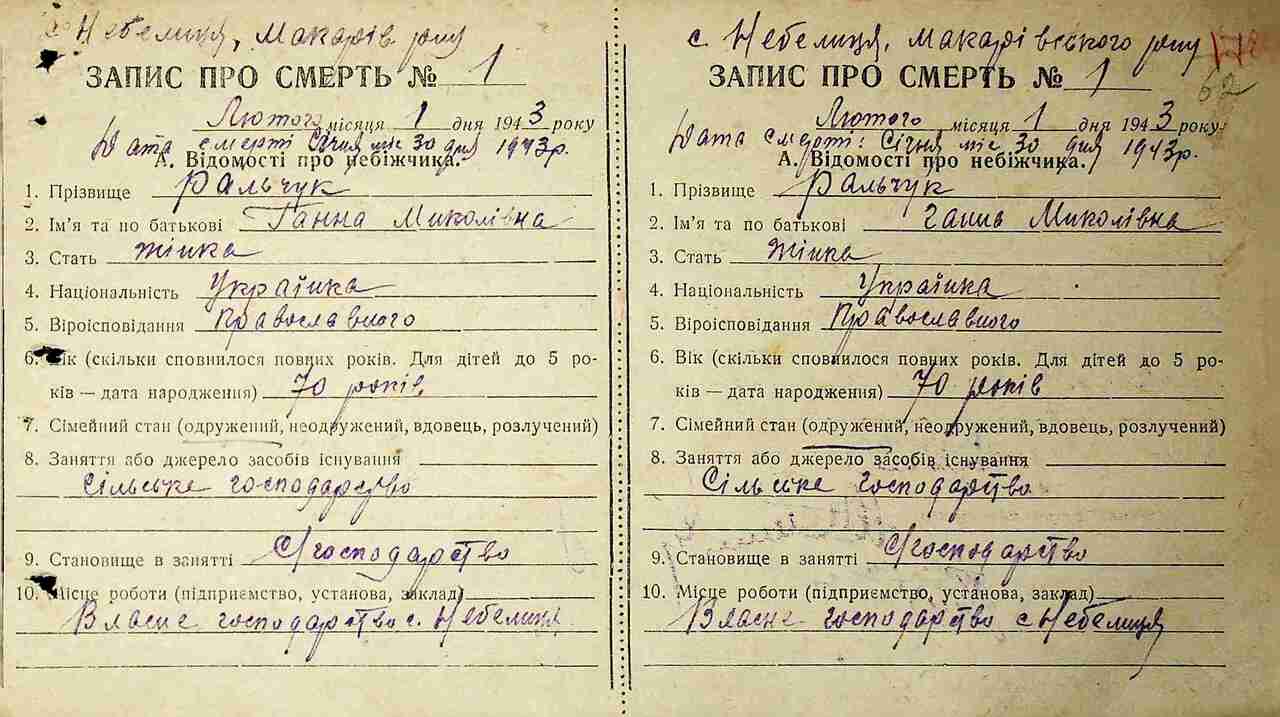 с Небелиця, Макарів рну
ЗАПИС ПРО СМЕРТЬ № 1
Лютого місяця 1 дня 1943 року
Дата смерті Січня міс 30 дня 1943р.
А. Відомості про небіжчика.
1. Прізвище Ральчук
2. Ім'я та по батькові Ганна Миколівна
3. Стать жінка
4. Національність Українка
5. Віроісповідання Православного
6. Вік (скільки сповнилося повних років. Для дітей до 5 ро-
ків — дата народження) 70 років.
7. Сімейний стан (одружений, неодружений, вдовець, розлучений)
8. Заняття або джерело засобів існування
Сільське господарство
9. Становище в занятті С/господарство
10. Місце роботи (підприємство, установа, заклад)
Власне господарство с. Небелиця
с. Небелиця, Макарівського рну
62
ЗАПИС ПРО СМЕРТЬ № 1
Лютого місяця 1 дня 1943 року
Дата смерті: Січня міс 30 дня 1943р.
А. Відомості про небіжчика.
1. Прізвище Ральчук
2. Ім'я та по батькові Ганна Миколівна
3. Стать Жінка
4. Національність Українка
5. Віроісповідання Православного
6. Вік (скільки сповнилося повних років. Для дітей до 5 ро-
ків — дата народження) 70 років
7. Сімейний стан (одружений, неодружений, вдовець, розлучений)
8. Заняття або джерело засобів існування
Сільське господарство
9. Становище в занятті С/господарство
10. Місце роботи (підприємство, установа, заклад)
Власне господарство с Небелиця